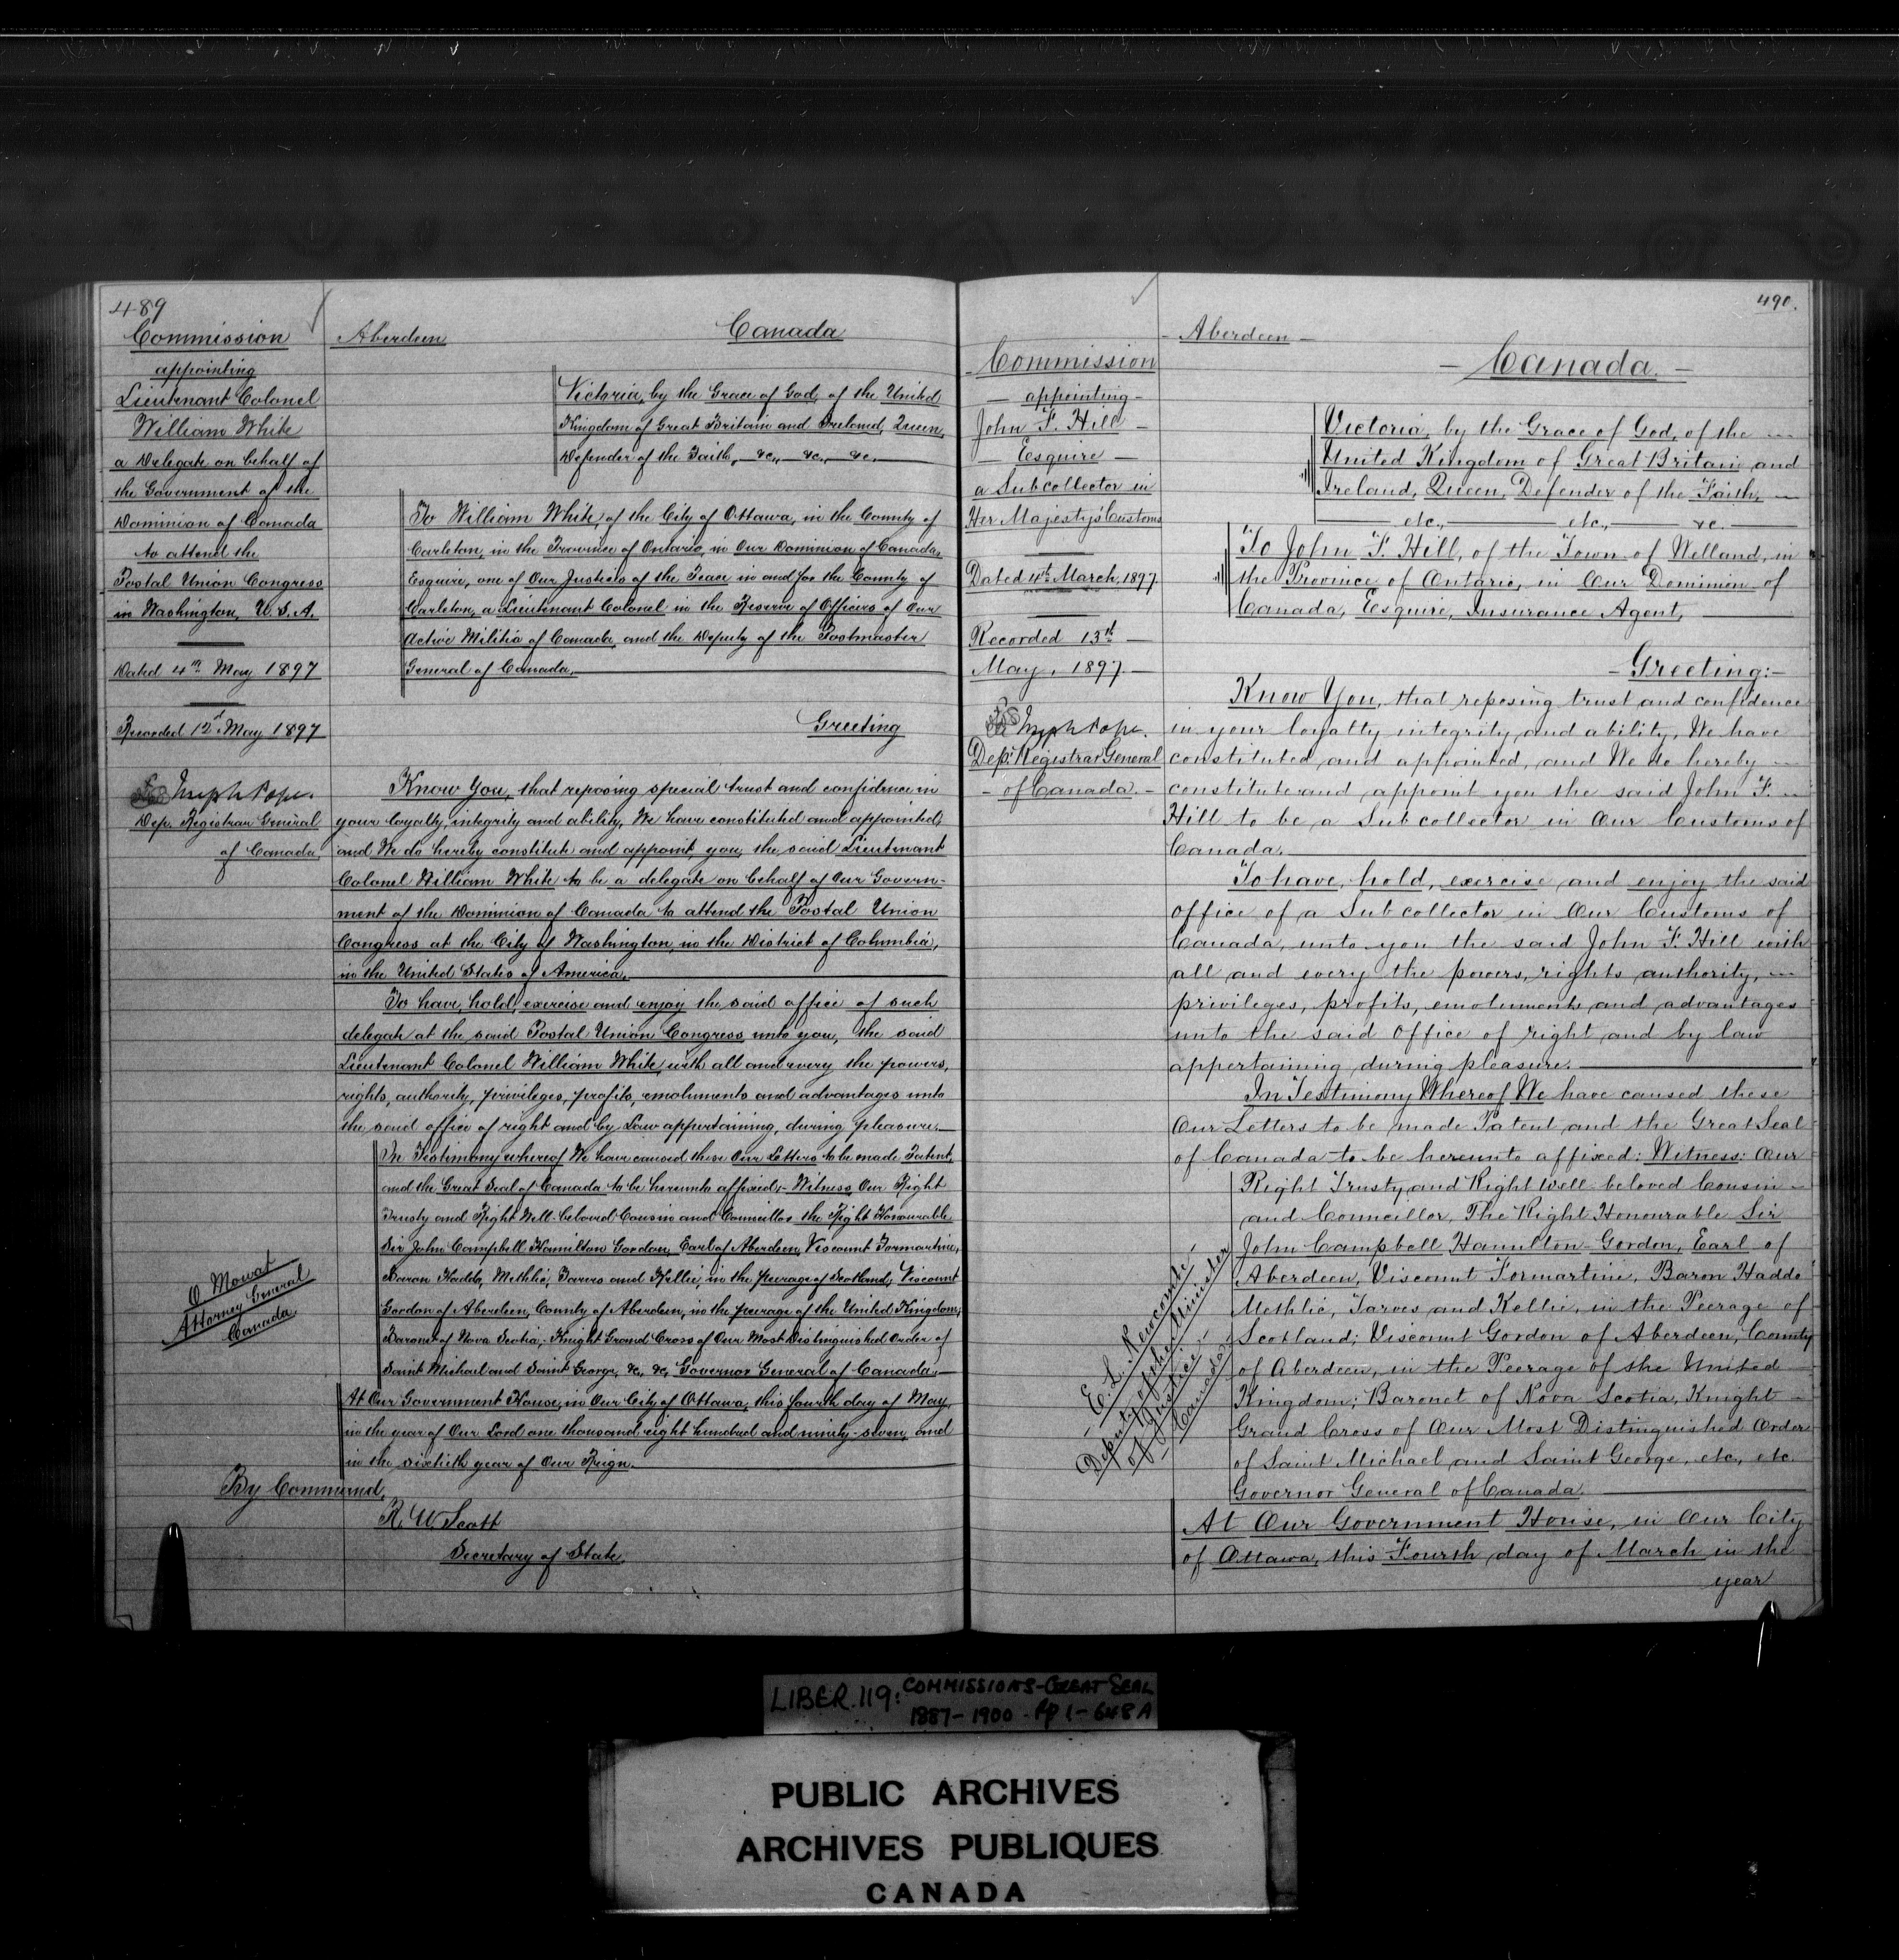 489
Commission
appointing
Lieutenant Colonel
William White
a Delegate on behalf of
the Government of the
Dominion of Canada
to attend the
Postal Union Congress
in Washington, U.S.A.
Dated 4th May 1897
Recorded 12th May 1897
Joseph Pope.
Dep. Registrar General
of Canada
O Mowat
Attorney General
Canada
Aberdeen
Canada
Victoria, by the Grace of God, of the United
Kingdom of Great Britain and Ireland, Queen,
Defender of the Faith, &c., &c., &c.
To William White, of the City of Ottawa, in the County of
Carleton, in the Province of Ontario, in Our Dominion of Canada,
Esquire, one of Our Justices of the Peace in and for the County of
Carleton, a Lieutenant Colonel in the Reserve of Officers of Our
Active Militia of Canada, and the Deputy of the Postmaster
General of Canada,
Greeting
Know You, that reposing special trust and confidence in
your loyalty, integrity and ability, We have constituted and appointed,
and We do hereby constitute and appoint, you, the said Lieutenant
Colonel William White to be a delegate on behalf of Our Govern-
ment of the Dominion of Canada to attend the Postal Union
Congress at the City of Washington, in the District of Columbia,
in the United States of America.
To have, hold, exercise and enjoy the said office of such
delegate at the said Postal Union Congress unto you, the said
Lieutenant Colonel William White, with all and every the powers,
rights, authority, privileges, profits, emoluments and advantages unto
the said office of right and by Law appertaining, during pleasure.
In Testimony whereof We have caused these Our Letters to be made Patent,
and the Great Seal of Canada to be hereunto affixed;- Witness, Our Right
Trusty and Right Well-beloved Cousin and Councillor the Right Honourable
Sir John Campbell Hamilton Gordon, Earl of Aberdeen, Viscount Formartine,
Baron Haddo, Methlic, Tarves and Kellie, in the peerage of Scotland; Viscount
Gordon of Aberdeen, County of Aberdeen, in the peerage of the United Kingdom;
Baronet of Nova Scotia; Knight Grand Cross of Our Most Distinguished Order of
Saint Michael and Saint George, &c, &c, Governor General of Canada.
At Our Government House, in Our City of Ottawa, this fourth day of May,
in the year of Our Lord one thousand eight hundred and ninety-seven, and
in the sixtieth year of Our Reign.
By Command,
R. W. Scott
Secretary of State.
490.
Commission
appointing
John F. Hill
Esquire
a Sub collector in
Her Majesty's Customs
Dated 4th March, 1897.
Recorded 13th
May, 1897.
Joseph Pope.
Dep: Registrar General
of Canada.
E. L. Newcombe,
Deputy of the Minister
of Justice,
Canada.
Aberdeen
Canada.
Victoria, by the Grace of God, of the
United Kingdom of Great Britain and
Ireland, Queen, Defender of the Faith,
etc., etc., &c.
To John F. Hill, of the Town of Welland, in
the Province of Ontario, in Our Dominion of
Canada, Esquire, Insurance Agent,
Greeting:-
Know You, that reposing trust and confidence
in your loyalty integrity and ability, We have
constituted and appointed, and We do hereby
constitute and appoint you the said John F.
Hill to be a Sub collector in Our Customs of
Canada.
To have, hold, exercise and enjoy the said
office of a Sub collector in Our Customs of
Canada, unto you the said John F. Hill with
all and every the powers, rights authority,
privileges, profits, emoluments and advantages
unto the said Office of right and by law
appertaining during pleasure.
In Testimony Whereof We have caused these
Our Letters to be made Patent and the Great Seal
of Canada to be hereunto affixed: Witness: Our
Right Trusty and Right well-beloved Cousin
and Councillor, The Right Honourable Sir
John Campbell Hamilton-Gordon, Earl of
Aberdeen, Viscount Formartine, Baron Haddo
Methlic, Tarves and Kellie, in the Peerage of
Scotland; Viscount Gordon of Aberdeen, County
of Aberdeen, in the Peerage of the United
Kingdom; Baronet of Nova Scotia, Knight
Grand Cross of Our Most Distinguished Order
of Saint Michael and Saint George, etc., etc.
Governor General of Canada.
At Our Government House, in Our City
of Ottawa, this Fourth day of March in the
year
LIBER. 119: COMMISSIONS-GREAT SEAL
1887-1900 - Pp 1-648A
PUBLIC ARCHIVES
ARCHIVES PUBLIQUES
CANADA